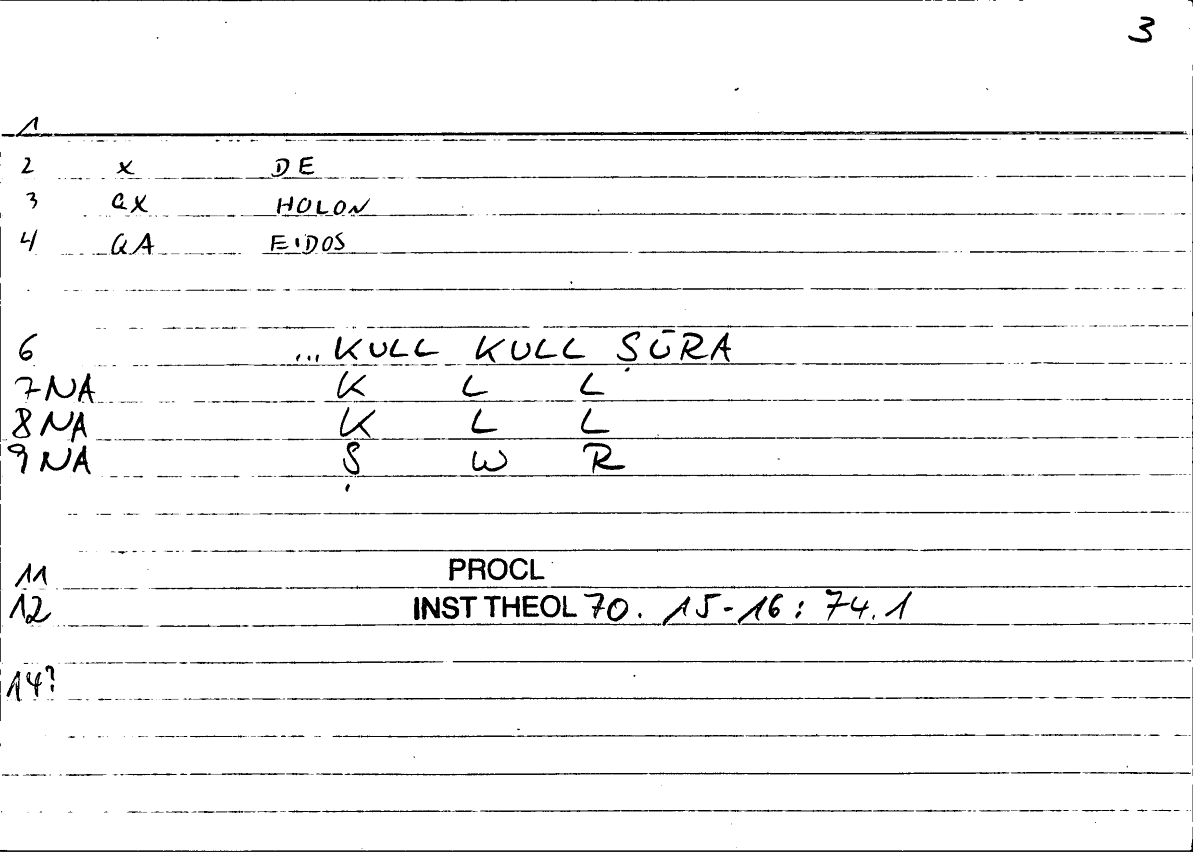 3
1
2 x DE
3 ax HOLON
4 aA EIDOS
6 ... KULL KULL ṢŪRA
7 NA K L L
8 NA K L L
9 NA Ṣ W R
11 PROCL
12 INST THEOL 70. 15-16: 74.1
14?